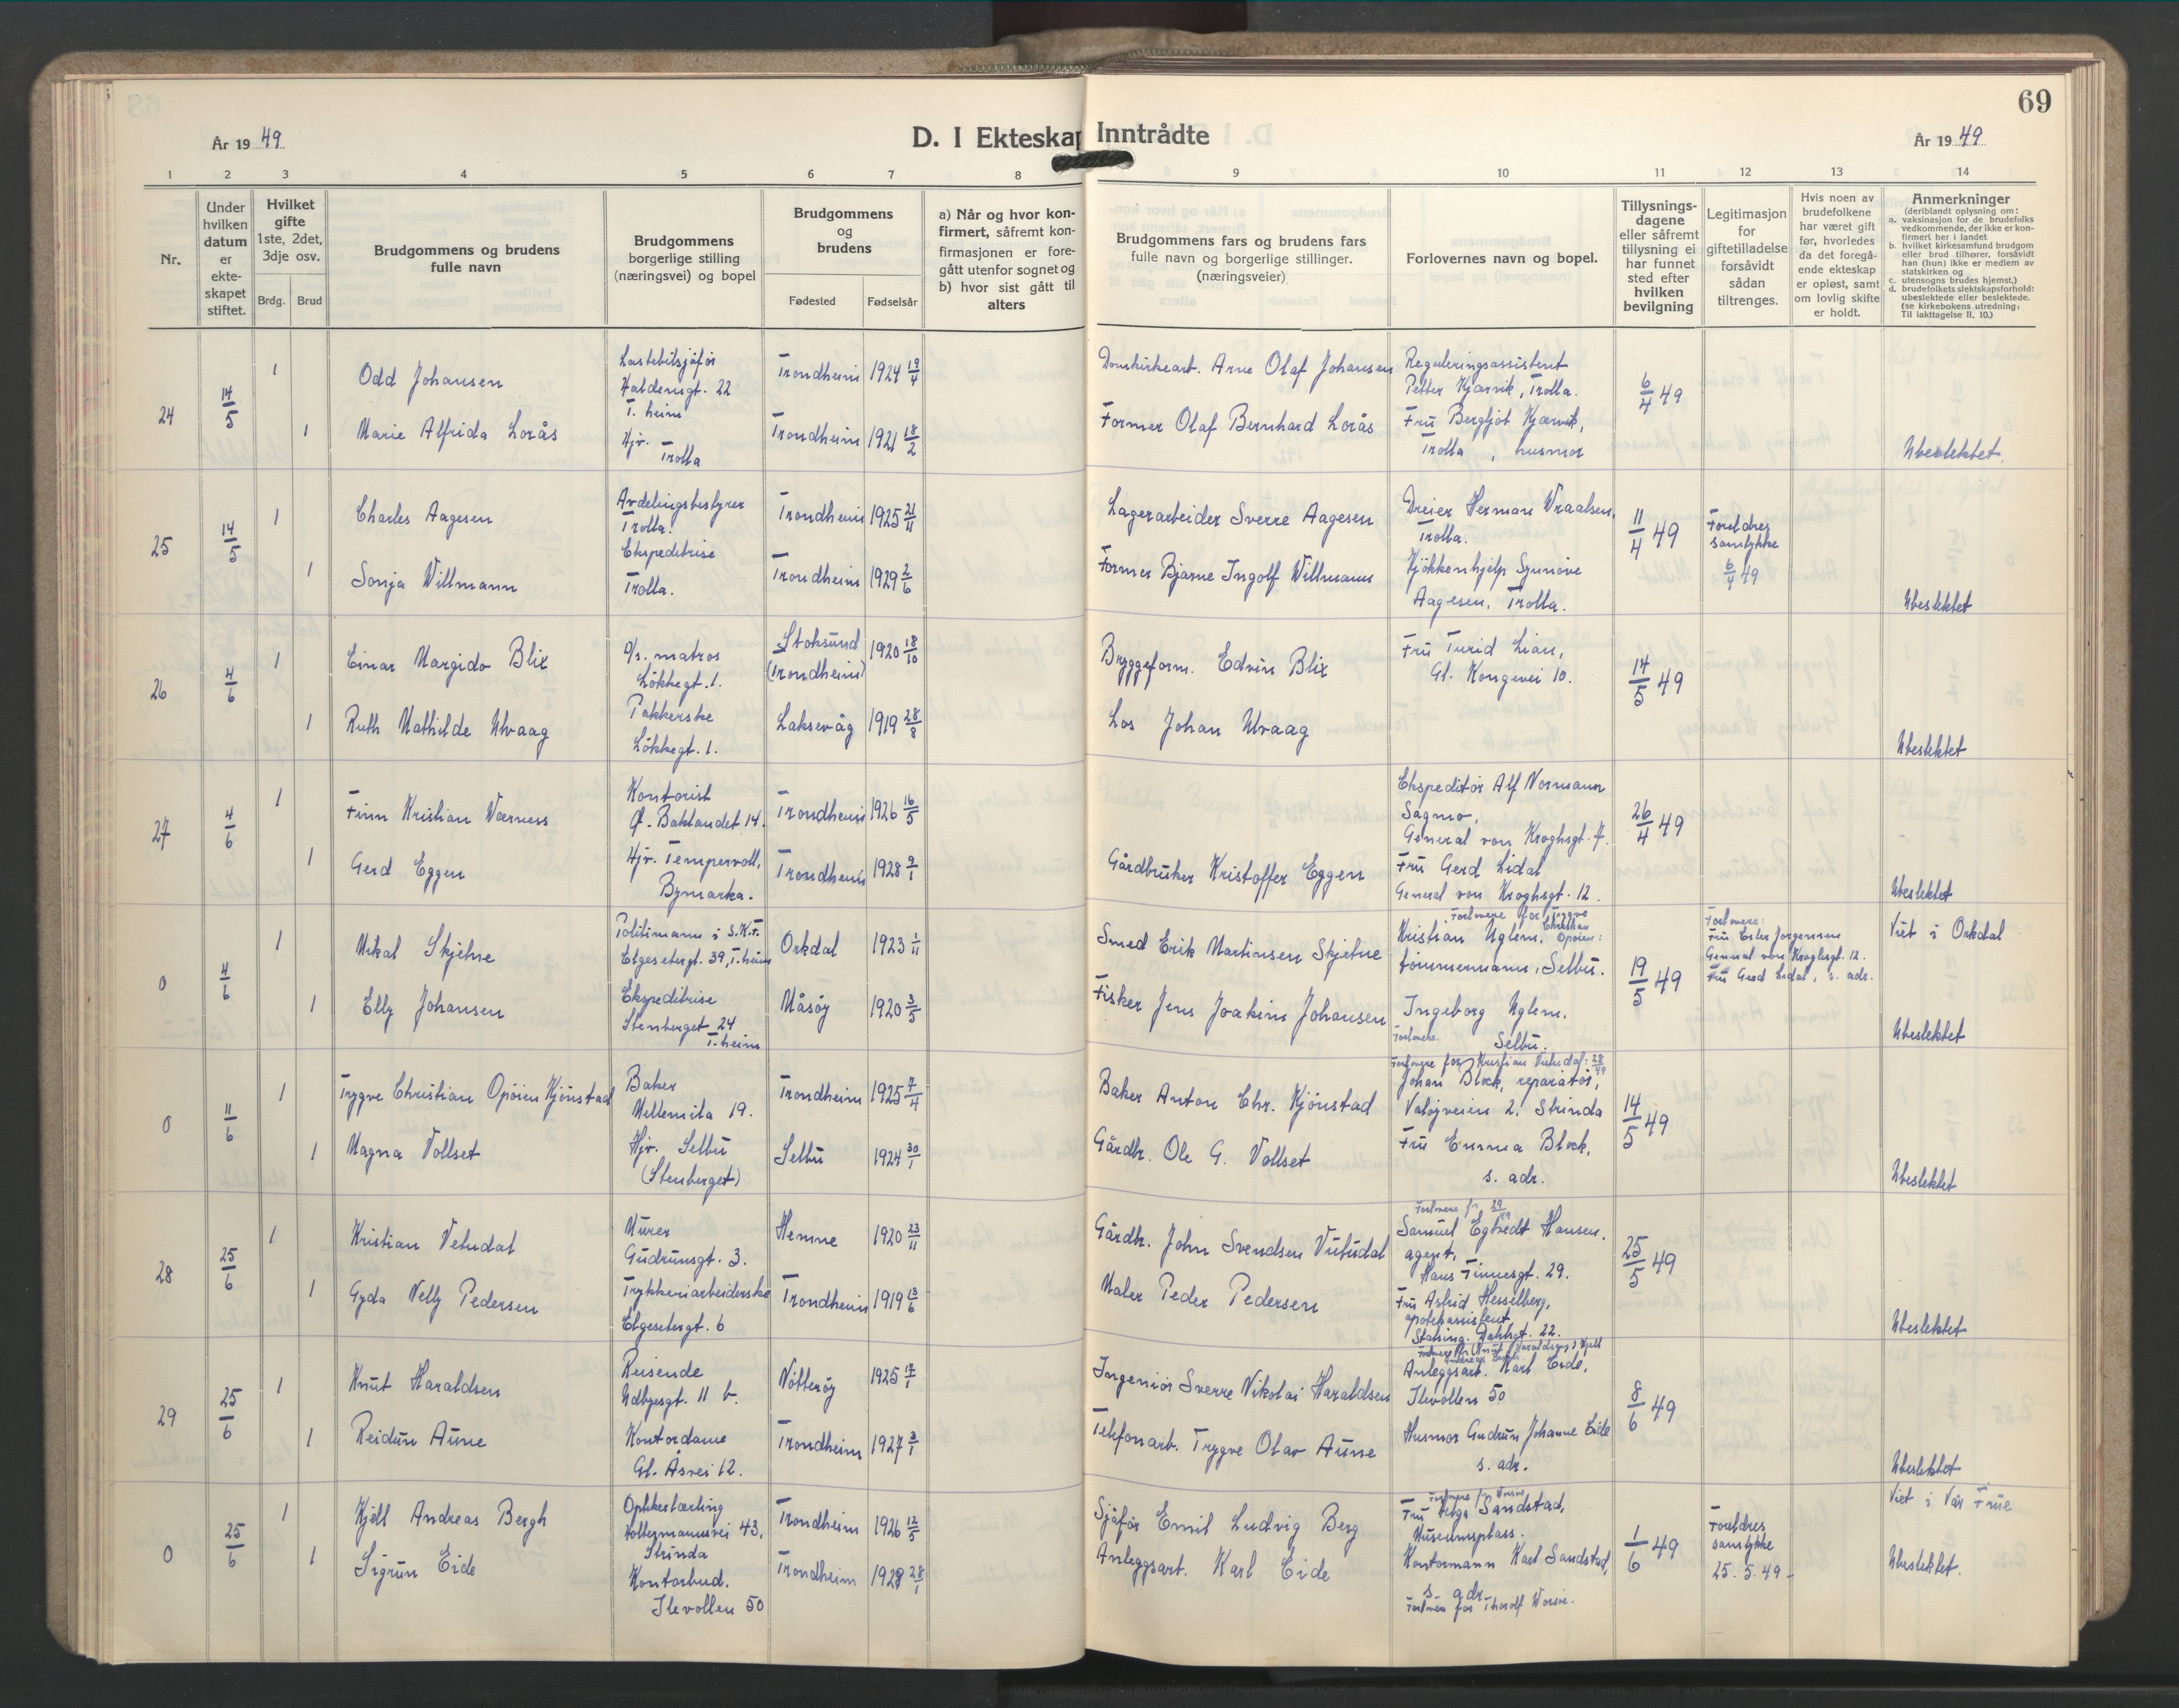 69
År 1949
D. I Ekteskap Inntrådte
År 1949
1 2 3 4 5 6 7 8 9 10 11 12 13 14
Nr.
Under hvilken datum er ekte-skapet stiftet.
Hvilket gifte 1ste, 2det, 3dje osv.
Brdg. Brud
Brudgommens og brudens fulle navn
Brudgommens borgerlige stilling (næringsvei) og bopel
Brudgommens og brudens
Fødested Fødselsår
a) Når og hvor kon-firmert, såfremt kon-firmasjonen er fore-gått utenfor sognet og b) hvor sist gått til alters
Brudgommens fars og brudens fars fulle navn og borgerlige stillinger. (næringsveier)
Forlovernes navn og bopel.
Tillysnings-dagene eller såfremt tillysning ei har funnet sted efter hvilken bevilgning
Legitimasjon for giftetilladelse forsåvidt sådan tiltrenges.
Hvis noen av brudefolkene har været gift før, hvorledes da det foregå-ende ekteskap er opløst, samt om lovlig skifte er holdt.
Anmerkninger
(deriblandt oplysning om:
a. vaksinasjon for de brudefolks vedkommende, der ikke er kon-firmert her i landet
b. hvilket kirkesamfund brudgom eller brud tilhører, forsåvidt han (hun) ikke er medlem av statskirken og
c. utensogns brudes hjemst,)
d. brudefolkets slektskapsforhold: ubeslektede eller beslektede. (se kirkebokens utredning: Til iakttagelse II. 10.)
24 14/5 1 Odd Johansen Lastebilsjåfør Haldensgt. 22 T.heim Trondheim 1924 19/4 Domkirkearb. Arne Olaf Johansen Reguleringsassistent Petter Kjærvik, Trolla. 6/4 49
1 Marie Alfrida Lorås Hjv. Trolla Trondheim 1921 18/2 Former Olaf Bernhard Lorås Fru Bergljot Kjærvik, Trolla, husmor Ubeslektet.
25 14/5 1 Charles Aagesen Avdelingsbestyrer Trolla. Trondheim 1925 21/11 Lagerarbeider Sverre Aagesen Dreier Herman Vraalsen, Trolla. 11/4 49 Foreldres samtykke 6/4 49
1 Sonja Villmann Ekspeditrise Trolla. Trondheim 1929 2/6 Former Bjarne Ingolf Villmann Kjökkenhjelp Synnöve Aagesen, Trolla. Ubeslektet
26 4/6 1 Einar Margido Blix matros Lökkegt. 1. Stoksund (Trondheim) 1920 18/10 Bryggeform. Edvin Blix Fru Turid Lian, Gl. Kongevei 10. 14/5 49
1 Ruth Mathilde Ulvaag Pakkerske Lökkegt. 1. Laksevåg 1919 28/8 Los Johan Ulvaag Ubeslektet
27 4/6 1 Finn Kristian Værness Kontorist Ø. Baklandet 14. Trondheim 1926 16/5 Ekspeditør Alf Normann Sagmo, General von Kroghsgt. 7. 26/4 49
1 Gerd Eggen Hjv. Tempervoll, Bymarka. Trondheim 1928 9/1 Gårdbruker Kristoffer Eggen Fru Gerd Lidal General von Kroghsgt. 12. Ubeslektet
0 4/6 1 Mikal Skjetne Politimann i S.K.F. Elgesetergt. 39, T.heim Orkdal 1923 1/11 Smed Erik Martinsen Skjetne Forlovere for Trygve Christian Opöien: Kristian Uglem, tömmermann, Selbu. 19/5 49 Forlovere: Fru Ester Jørgensen General von Kroghsgt. 12. Fru Gerd Lidal, s. adr. Viet i Orkdal
1 Elly Johansen Ekspeditrise Stenberget 24 T.heim Måsöy 1920 3/5 Fisker Jens Joakim Johansen Ingeborg Uglem. Selbu. Forlovere Ubeslektet
0 11/6 1 Trygve Christian Opöien Kjönstad Baker Mellemila 19. Trondheim 1925 7/4 Baker Anton Chr. Kjönstad Johan Block, reparatör, Valöyveien 2. Strinda 14/5 49
1 Magna Vollset Hjv. Selbu (Stenberget) Selbu 1924 30/1 Gårdbr. Ole G. Vollset Fru Emma Block, s. adr. Ubeslektet
28 25/6 1 Kristian Vetudal Murer Gudrunsgt. 3. Hemne 1920 23/11 Gårdbr. John Svendsen Vutudal Samuel Egtvedt Hansen. agent, Hans Finnesgt. 29. 25/5 49
1 Gyda Nelly Pedersen Trykkeriarbeiderske Elgesetergt. 6 Trondheim 1919 13/6 Maler Peder Pedersen Fru Astrid Hesselberg, apotekassistent, Dahlsgt. 22. Ubeslektet
29 25/6 1 Knut Haraldsen Reisende Udbyesgt. 11 b. Nötteröy 1925 17/1 Ingeniör Sverre Nikolai Haraldsen Anleggsarb. Karl Eide, Ilevollen 50 8/6 49
1 Reidun Aune Kontordame Gl. Åsvei 12. Trondheim 1927 3/1 Telefonarb. Trygve Olav Aune Husmor Gudrun Johanne Eide s. adr. Ubeslektet
0 25/6 1 Kjell Andreas Bergh Optikerlærling 43, Strinda Trondheim 1926 12/5 Sjåför Emil Ludvig Berg Fru Helga Sandstad, Museumsplass. 1/6 49 Foreldres samtykke 25.5.49- Viet i Vår Frue
1 Sigrun Eide Kontorbud. Ilevollen 50 Trondheim 1928 28/1 Anleggsarb. Karl Eide Kontormann Karl Sandstad, s. adr. Ubeslektet.